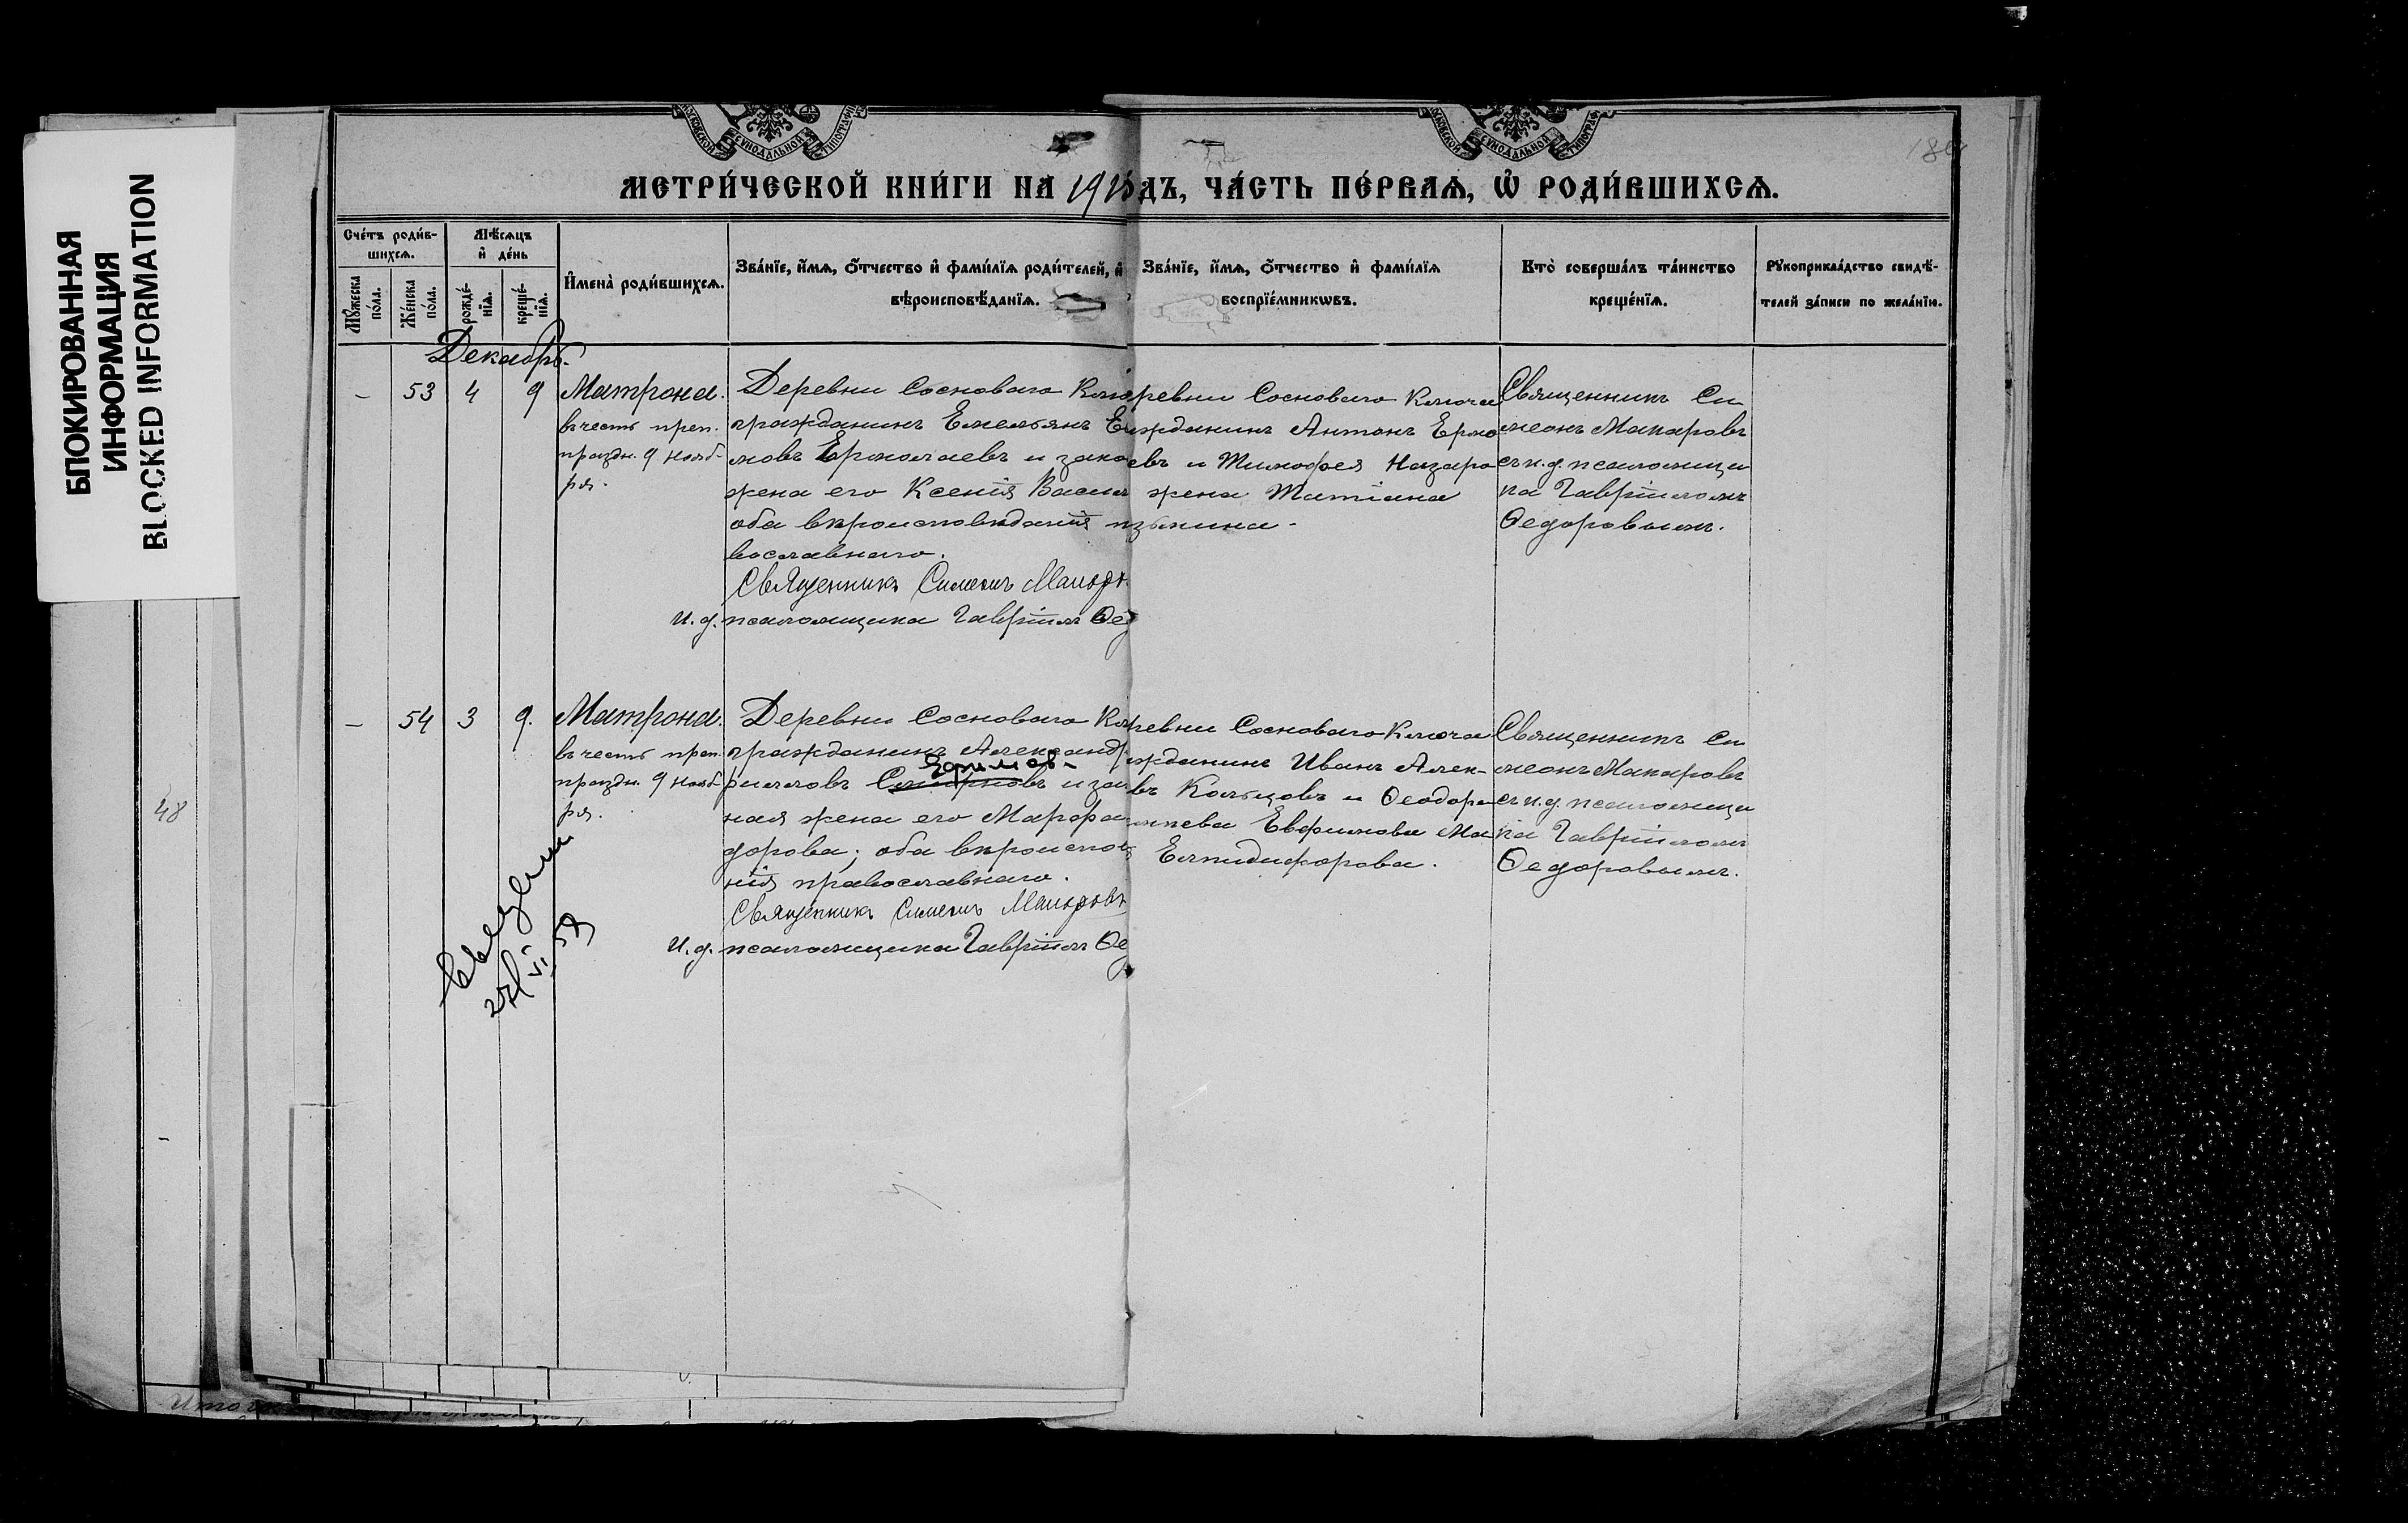 БЛОКИРОВАННАЯ
ИНФОРМАЦИЯ
BLOCKED INFORMATION
МЕТРИ́ЧЕСКОЙ КНИ́ГИ НА 191 ДЪ, ЧА́СТЬ ПЕ́РВАѦ, Ѡ҆ РОДИ́ВШИХСѦ.
Сче́тъ роди́в-
шихсѧ.
Мꙋ́жеска
по́ла.
Же́нска
по́ла.
Мѣ́сѧцъ
и҆ де́нь
рожде́-
нїѧ.
креще́-
нїѧ.
И҆мена̀ роди́вшихсѧ.
Зва́нїе, и҆́мѧ, ѻ҆́тчество и҆ фами́лїѧ роди́телей, и҆
вѣроисповѣ́данїѧ.
Зва́нїе, и҆́мѧ, ѻ҆́тчество и҆ фами́лїѧ
воспрїе́мникѡвъ.
Кто̀ соверша́лъ та́инство
креще́нїѧ.
Рꙋкоприкла́дство свидѣ́-
телей за́писи по жела́нїю.
Декабрь.
– 53 4 9 Матрона.
въ честь преп.
праздн. 9 нояб-
ря.
Деревни Сосноваго Клю
гражданинъ Емельянъ Е
мовъ Ермолаевъ и зако
жена его Ксенія Васил
оба вѣроисповѣданія п
вославнаго.
Священникъ Симеонъ Макаро
И. д. псаломщика Гавріилъ Ѳед
ревни Сосноваго Ключа
жданинъ Антонъ Ермо
евъ и Тимофея Назаро
жена Татіана
зьмина.
Священникъ Си
меонъ Макаровъ
съ и. д. псаломщи
ка Гавріиломъ
Ѳедоровымъ.
– 54 3 9. Матрона.
въ честь преп.
праздн. 9 нояб-
ря.
Деревни Сосноваго Клю
гражданинъ Александр
Ефимов
рилловъ Смирновъ и зак
ная жена его Марфа
дорова; оба вѣроиспов
нія православнаго.
Священникъ Симеонъ Макаровъ
И. д. псаломщика Гавріилъ Ѳед
ревни Сосноваго Ключа
жданинъ Иванъ Алек-
въ Кольцовъ и Ѳеодора
Евфимова Ма
Елпидифорова.
Священникъ Си
меонъ Макаровъ
съ и. д. псаломщи
ка Гавріиломъ
Ѳедоровымъ.
48